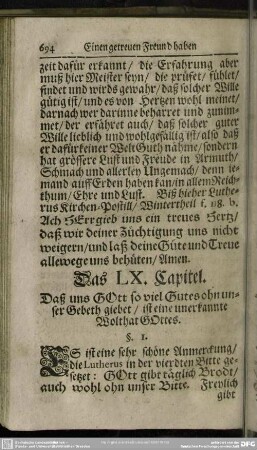 694 Einen getreuen Freund haben
zeit dafür erkannt/ die Erfahrung aber
muß hier Meister seyn/ die prüfet/ fühlet/
findet und wirds gewahr/ daß solcher Wille
gütig ist/ und es von Hertzen wohl meinet/
darnach wer darinne beharret und zunim-
met/ der erfähret auch/ daß solcher guter
Wille lieblich und wohlgefällig ist/ also daß
er dafür keiner Welt Guth nähme/ sondern
hat grössere Lust und Freude in Armuth/
Schmach und allerley Ungemach/ denn ie-
mand auff Erden haben kan/ in allem Reich-
thum/ Ehre und Lust. Biß hieher Luthe-
rus Kirchen-Postill/ Wintertheil f. 118. b.
Ach HErr gieb uns ein treues Hertz/
daß wir deiner Züchtigung uns nicht
weigern/ und laß deine Güte und Treue
allewege uns behüten/ Amen.
Das LX. Capitel.
Daß uns GOtt so viel Gutes ohn un-
ser Gebeth giebet/ ist eine unerkannte
Wolthat GOttes.
§. 1.
ES ist eine sehr schöne Anmerckung/
die Lutherus in der vierdten Bitte ge-
setzet: GOtt gibt täglich Brodt/
auch wohl ohn unser Bitte. Freylich
gibt